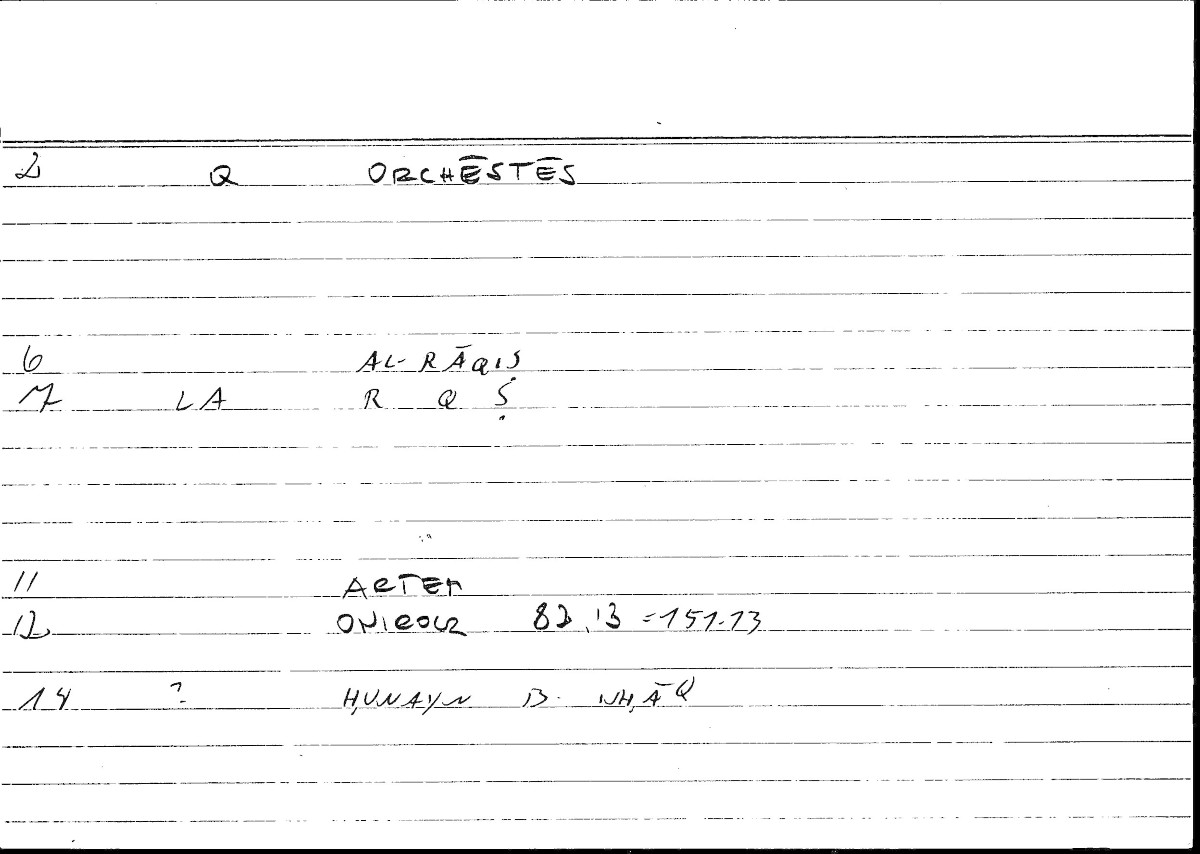 2 Q ORCHĒSTĒS
6 AL-RĀQIṢ
7 LA R Q Ṣ
11 ARTEM
12 ONIROCR 82,13 = 151.13
14 ? ḤUNAYN B. ISḤĀQ